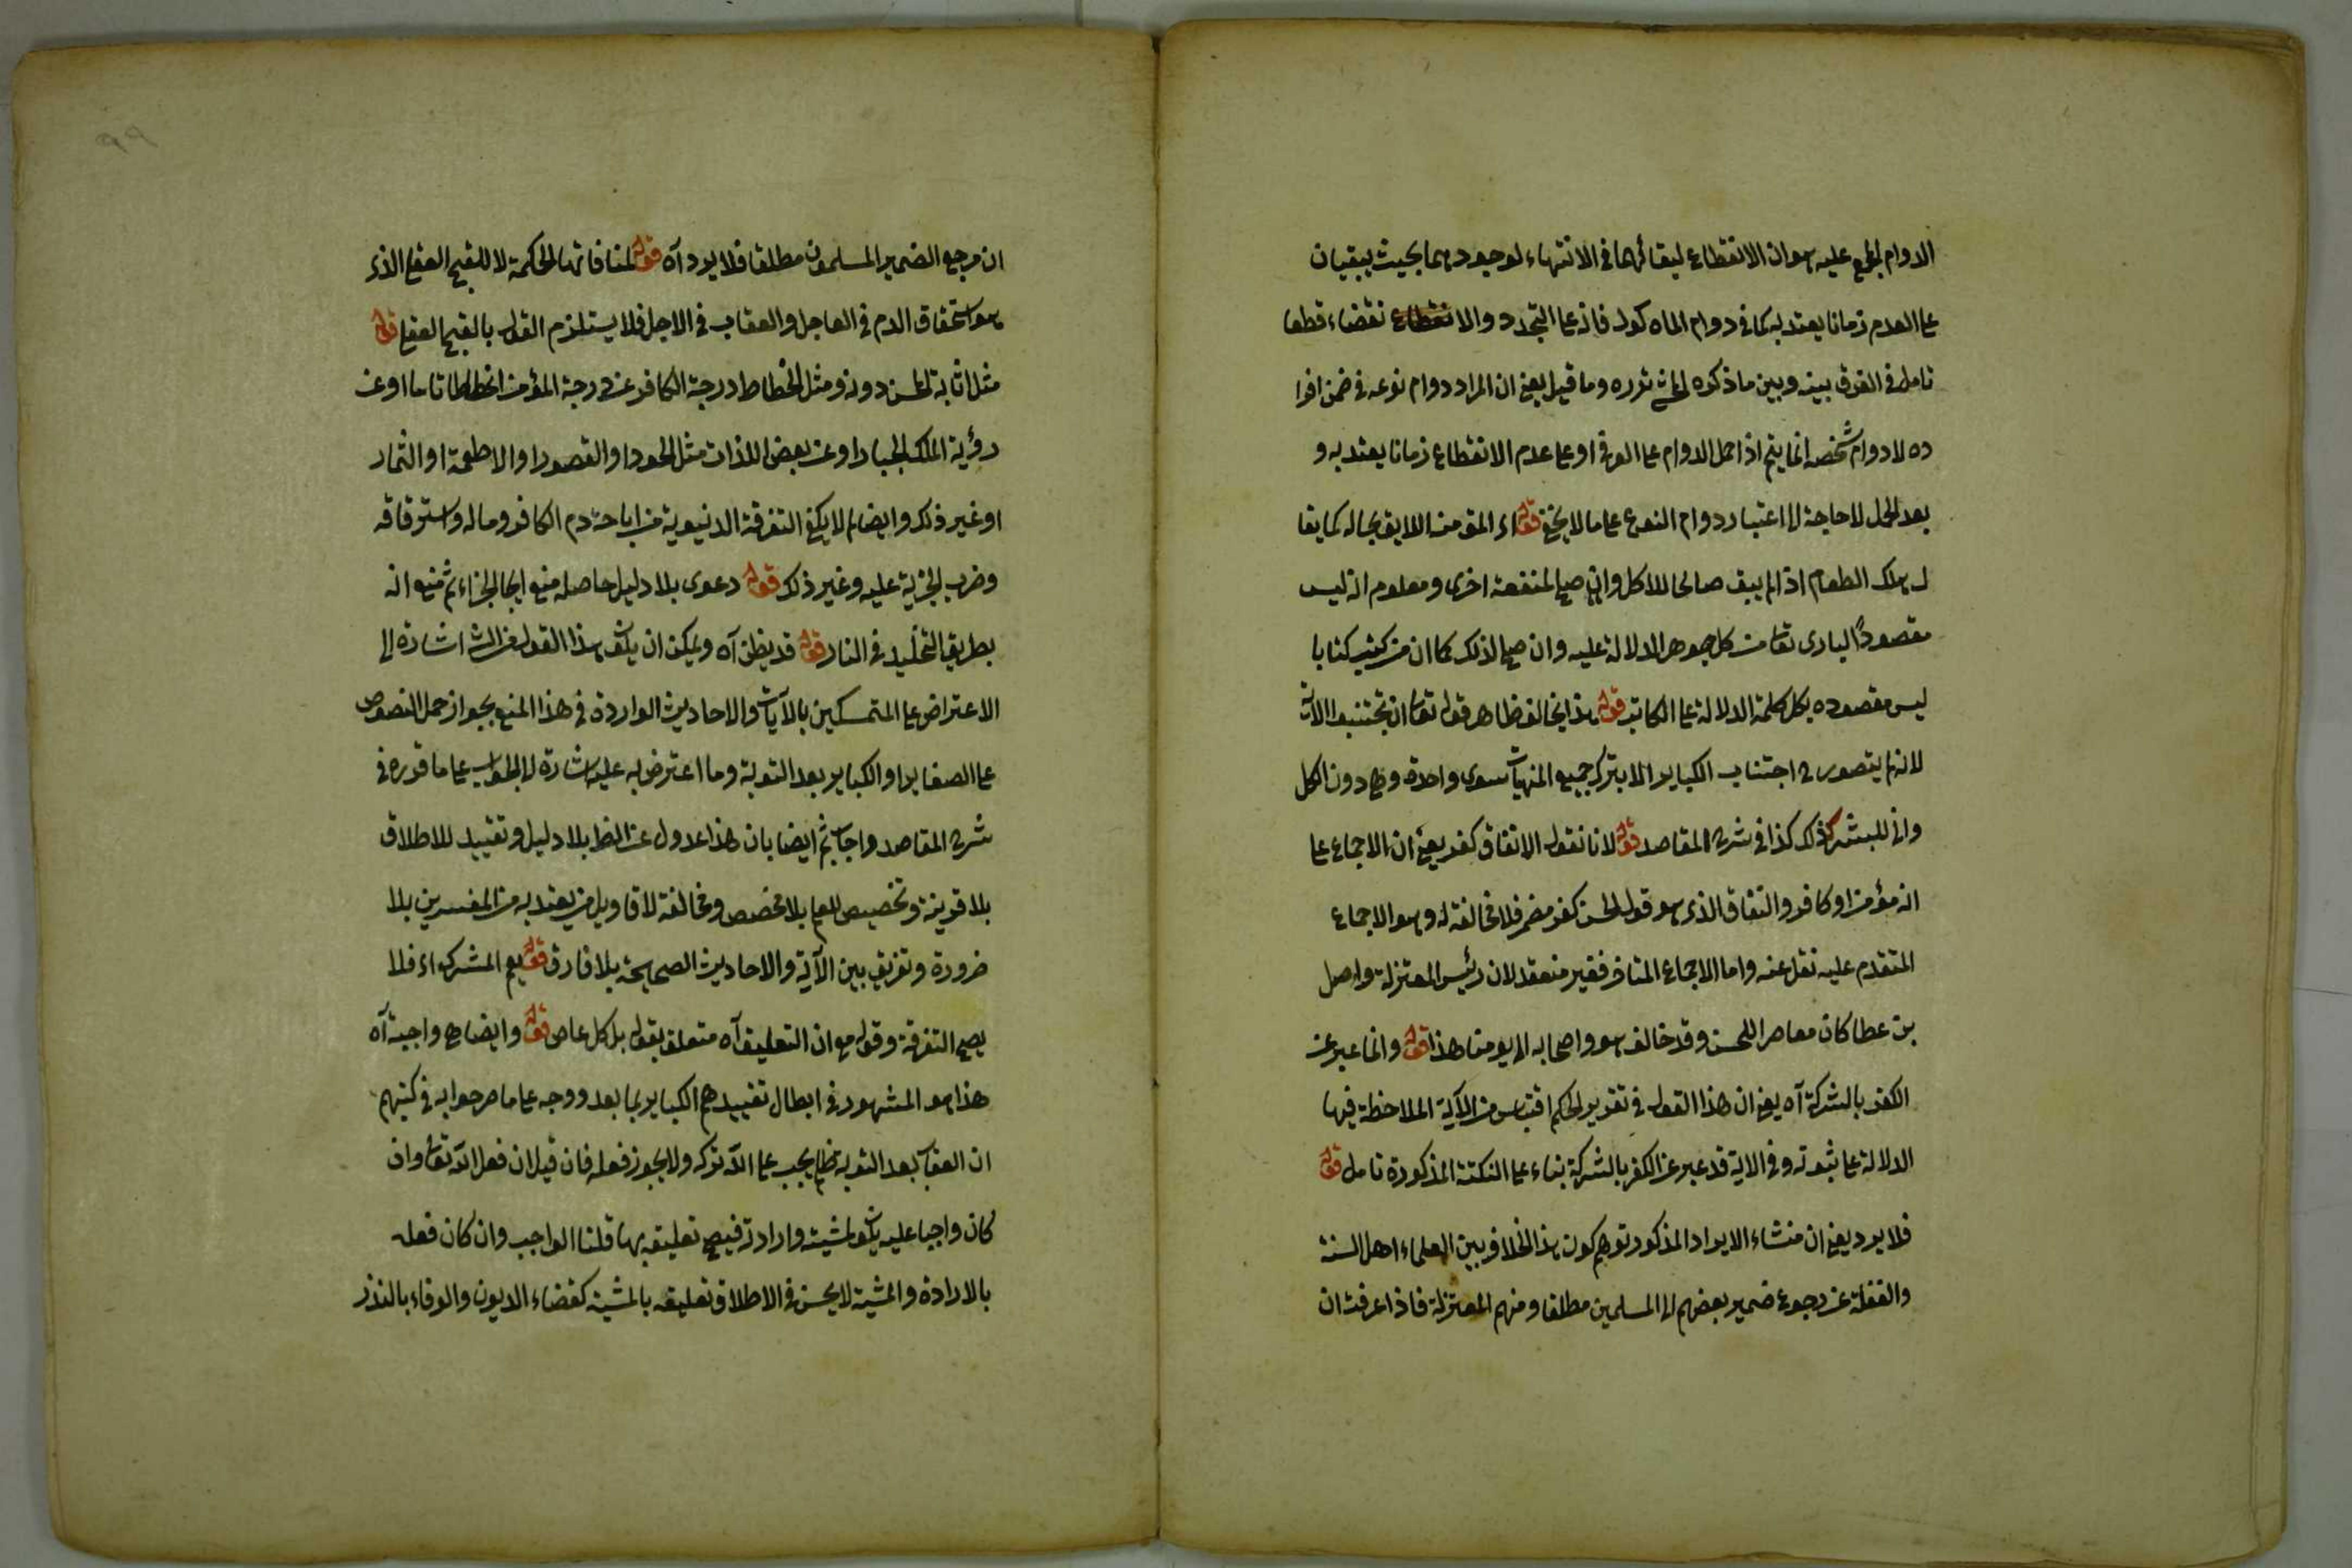 الدوام المجمع عليه هو ان الانقطاع لبقائهما في الانتهاء لوجودهما بحيث يبقيان
على العدم زمانا يعتد به كما في دوام الماكول فانه على التجدد والانقضاء قطعا
تامل في الفرق بينه وبين ما ذكره المحشي نوره وما قيل يعني ان المراد دوام نوعه في ضمن افرا
ده لا دوام شخصه انما يتم اذا حمل الدوام على العرفي او على عدم الانقطاع زمانا يعتد به و
بعد الحمل لا حاجة الى اعتبار دوام النوع على ما لا يخفى قوله اء المق منه اللايق بحاله كما يقا
ل هلك الطعام اذا لم يبق صالحا للاكل وان صلح لمنفعة اخرى ومعلوم انه ليس
مقصود الباري تعا من كل جوهر الدلالة عليه وان صلح لذلك كما ان من كتب كتابا
ليس مقصوده بكل كلمة الدلالة على الكاتب قوله هذا يخالف ظاهر قوله تعا ان تجتنبوا الاية
لانه لم يتصور ح اجتناب الكباير الا بترك جميع المنهيات سوى واحدة وهي دون الكل
وانى للبشر ذلك كذا في شرح المقاصد قوله لانا نقول الاتفاق كفر يعني ان الاجماع على
انه مؤمن او كافر والنفاق الذي هو قول الحسن كفر مضمر فلا مخالفة له وهو الاجماع
المتقدم عليه نقل عنه واما الاجماع المتاخر فغير منعقد لان رئيس المعتزلة واصل
بن عطا كان معاصرا للحسن وقد خالف هو واصحابه الى يومنا هذا قوله وانما عبر عن
الكفر بالشركة آه يعني ان هذا القول في تقرير الحكم اقتباس من الآية الملاحظة فيها
الدلالة على ثبوته وفي الاية قد عبر عن الكفر بالشركة بناء على النكتة المذكورة تامل قوله
فلا يرد يعني ان منشاء الايراد المذكور توهم كون هذا الخلاف بين العلماء اهل السنة
والغفلة عن رجوع ضمير بعضهم الى المسلمين مطلقا ومنهم المعتزلة فاذا عرفت ان
ان مرجع الضمير المسلمون مطلقا فلا يرد آه قوله لمنافاتها الحكمة لا للقبح العقلي الذي
هو استحقاق الذم في العاجل والعقاب في الاجل فلا يستلزم القول بالقبح العقلي قوله
مثل اثابة المحسن دونه ومثل انحطاط درجة الكافر عن درجة المؤمن انحطاطا تاما او عن
رؤية الملك الجبار او عن بعض اللذات مثل الحور او القصور او الاطعمة او الثمار
او غير ذلك وايضا لم لا يكفي التفرقة الدنيوية من اباحة دم الكافر وماله واسترقاقه
وضرب الجزية عليه وغير ذلك قوله دعوى بلا دليل حاصله منع ايجا الجزاء ثم منع انه
بطريق التخليد في النار قوله قد يظن آه ويمكن ان يكون هذا القول من الش اشارة الى
الاعتراض على المتمسكين بالآيات والاحاديث الواردة في هذا المنع بجواز حمل النصوص
على الصغاير او الكباير بعد التوبة وما اعترض به عليه اشارة الى الجواب على ما قرره في
شرح المقاصد واجاب ثم ايضا بان هذا عدول عن الظ بلا دليل وتقييد للاطلاق
بلا قرينة وتخصيص للعام بلا مخصص ومخالفة لاقاويل من يعتد به من المفسرين بلا
ضرورة وتفريق بين الآية والاحاديث الصحيحة بلا فارق قوله يعم المشرك اء فلا
يصح التفرقة وقوله مع ان التعليق آه متعلق بقوله بل كل عاص قوله وايضا هي واجبة آه
هذا هو المشهور في ابطال تقييدهم الكباير بما بعد ووجه على ما صرحوا به في كتبهم
ان العقاب بعد التوبة ظلم يجب على الله تركه ولا يجوز فعله فان قيل ان فعل الله تعا وان
كان واجبا عليه يكون بمشيته وارادته فيصح تعليقه بها قلنا الواجب وان كان فعله
بالارادة والمشية لا يحسن في الاطلاق تعليقه بالمشية كقضاء الديون والوفاء بالنذر